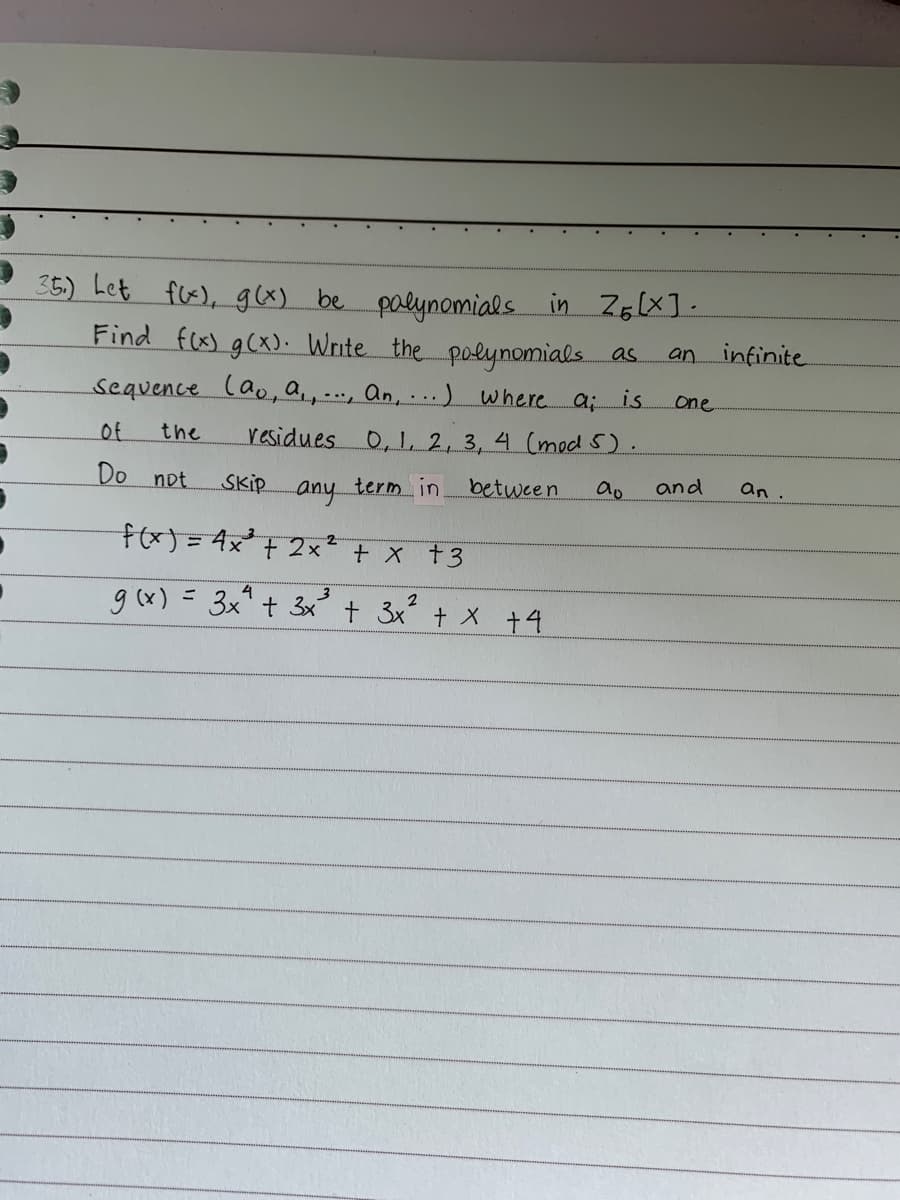 35.) Let f(x), g(x) be polynomials in Z₅[x].
Find f(x) g(x). Write the polynomials as an infinite
sequence (a₀, a₁, ..., an, ...) where aᵢ is one
of the residues 0, 1, 2, 3, 4 (mod 5).
Do not skip any term in between a₀ and an.
f(x) = 4x³ + 2x² + x + 3
g(x) = 3x⁴ + 3x³ + 3x² + x + 4